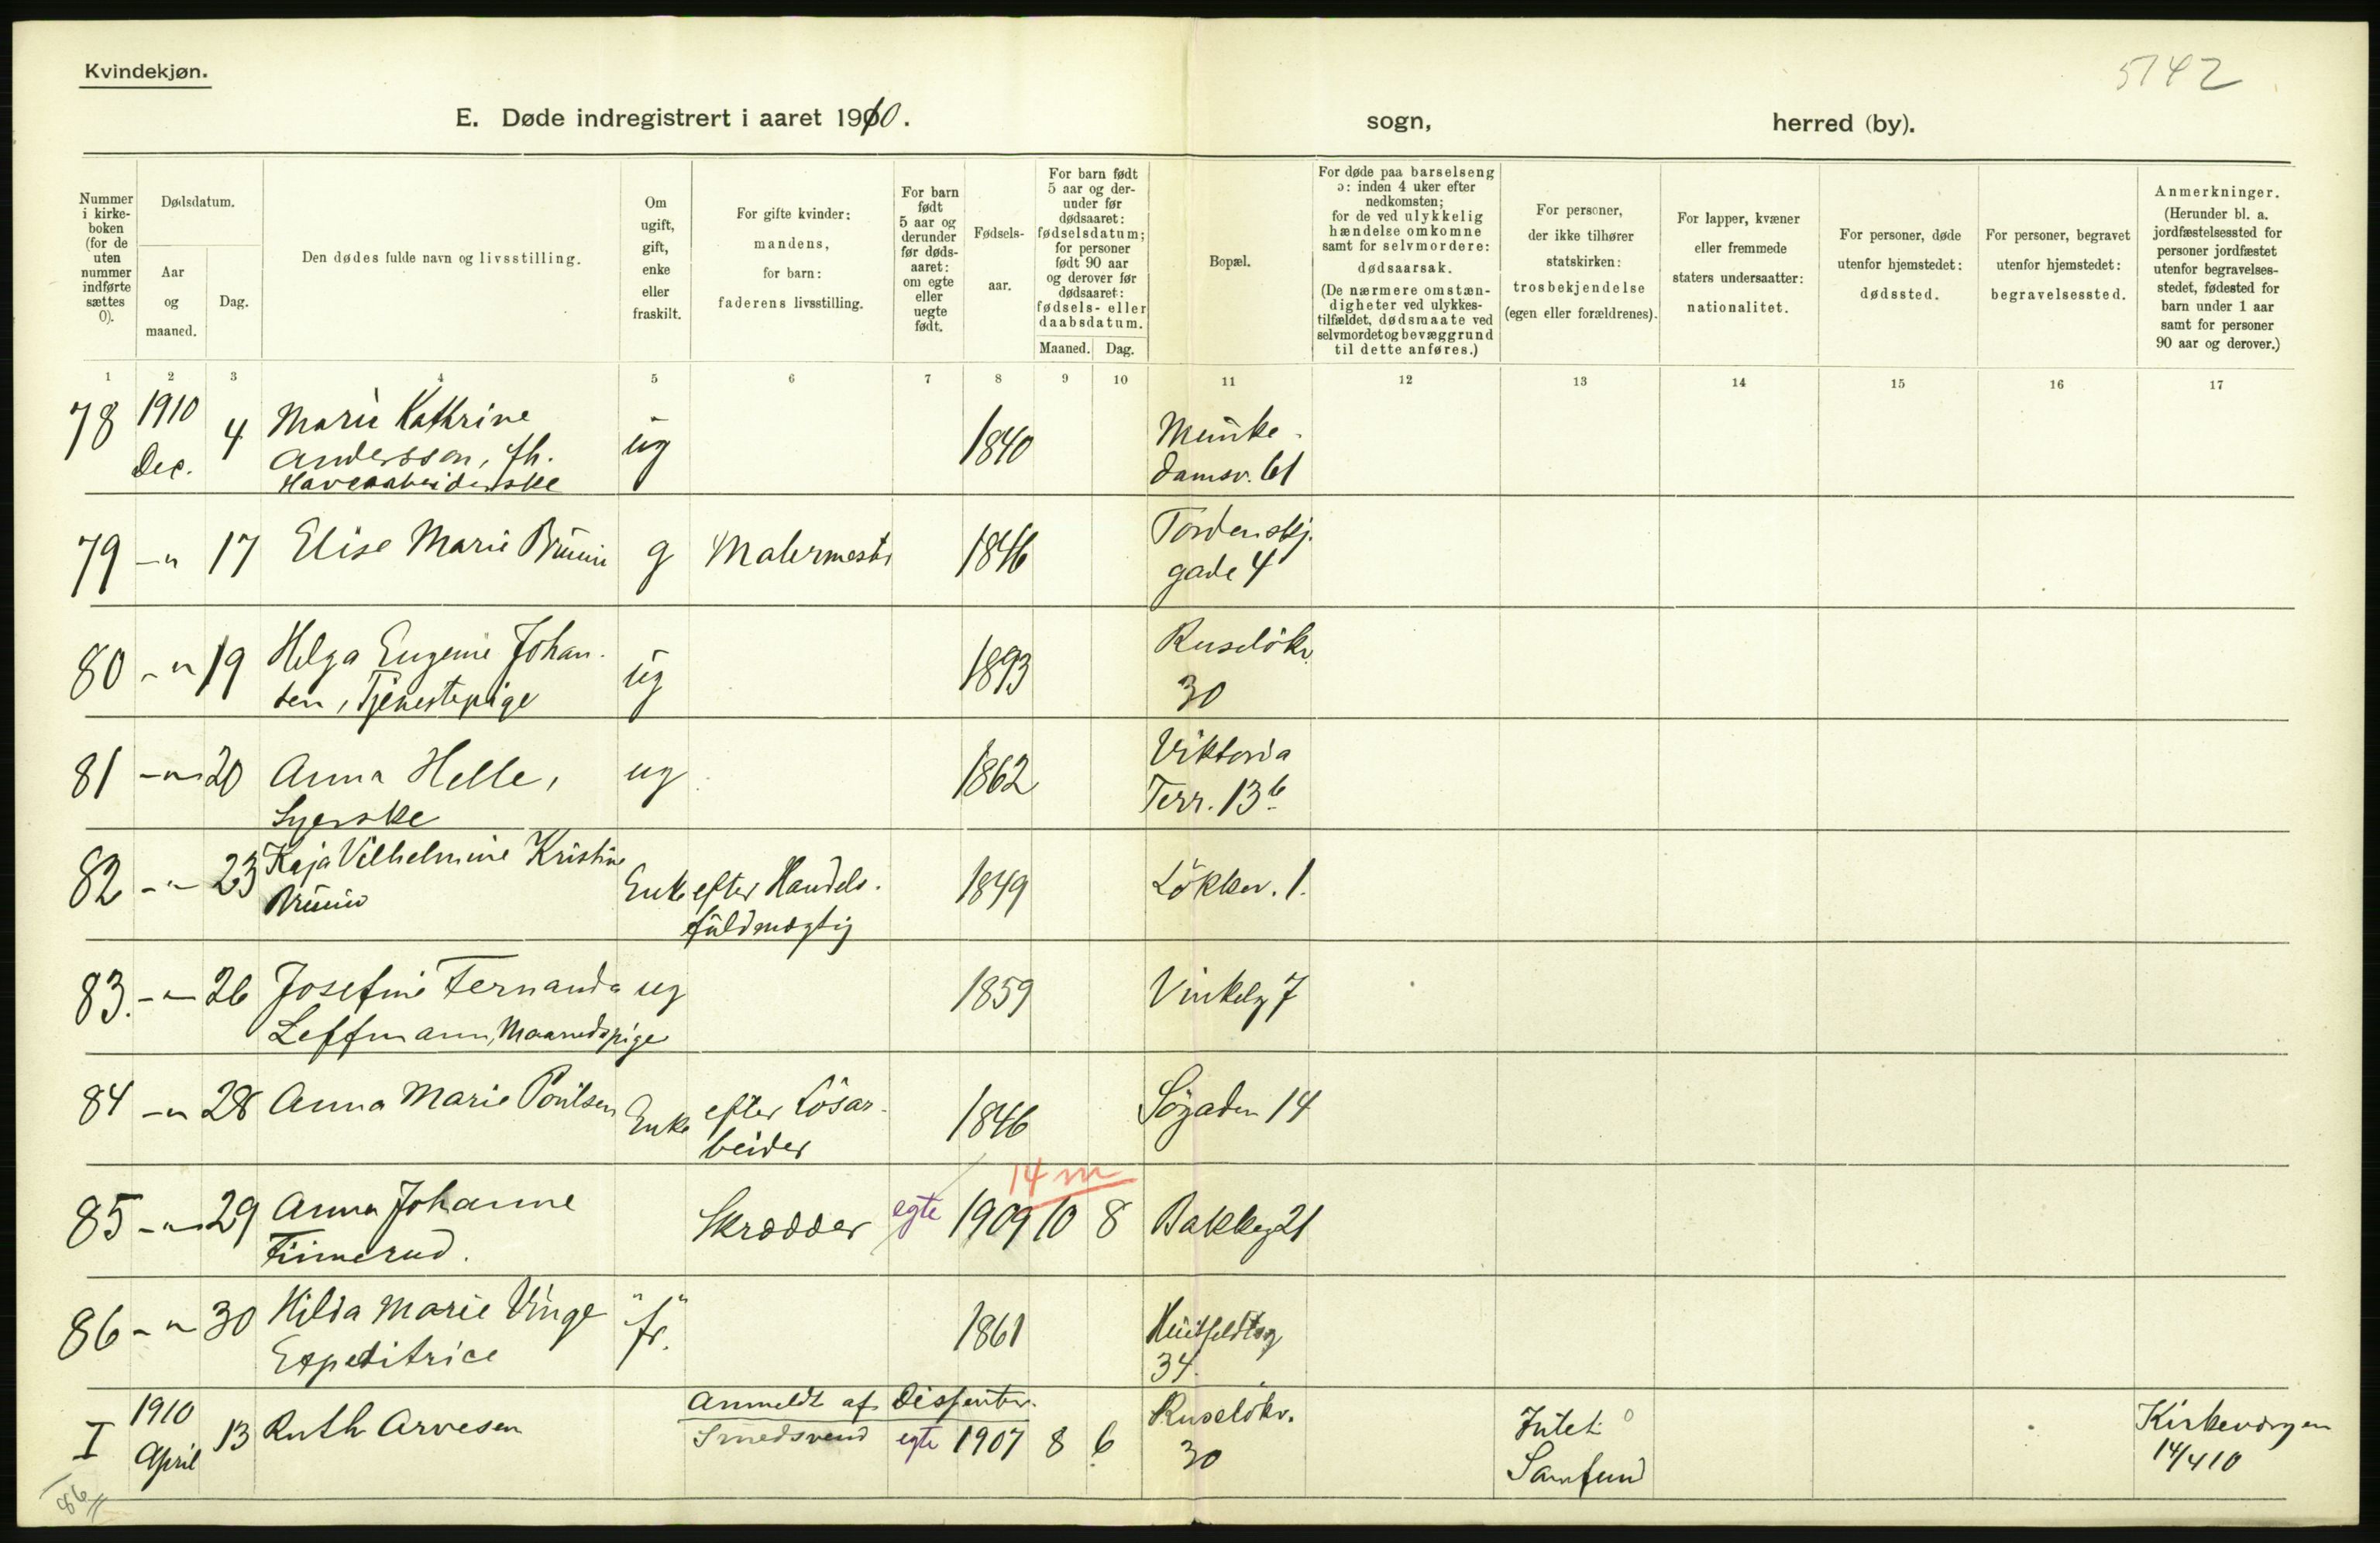 Kvindekjøn.
5142
E. Døde indregistrert i aaret 1910.
sogn,
herred (by).
Nummer i kirke- boken (for de uten nummer indførte sættes 0).
Dødsdatum.
Aar og maaned.
Dag.
Den dødes fulde navn og livsstilling.
Om ugift, gift, enke eller fraskilt.
For gifte kvinder: mandens, for barn: faderens livsstilling.
For barn født 5 aar og derunder før døds- aaret: om egte eller uegte født.
Fødsels- aar.
For barn født 5 aar og der- under før dødsaaret: fødselsdatum; for personer født 90 aar og derover før dødsaaret: fødsels- eller daabsdatum.
Maaned. Dag.
Bopæl.
For døde paa barselseng ɔ: inden 4 uker efter nedkomsten; for de ved ulykkelig hændelse omkomne samt for selvmordere: dødsaarsak. (De nærmere omstæn- digheter ved ulykkes- tilfældet, dødsmaate ved selvmordet og bevæggrund til dette anføres.)
For personer, der ikke tilhører statskirken: trosbekjendelse (egen eller forældrenes).
For lapper, kvæner eller fremmede staters undersaatter: nationalitet.
For personer, døde utenfor hjemstedet: dødssted.
For personer, begravet utenfor hjemstedet: begravelsessted.
Anmerkninger. (Herunder bl. a. jordfæstelsessted for personer jordfæstet utenfor begravelses- stedet, fødested for barn under 1 aar samt for personer 90 aar og derover.)
1 2 3 4 5 6 7 8 9 10 11 12 13 14 15 16 17
78 1910 Dec. 4 Marie Kathrine ug 1840 Munke-
Anderssen, fh. damsv. 61
Havearbeiderske
79 —"— 17 Elise Marie Bruun g Malermestr 1846 Tordenskj.
gade 4
80 -"- 19 Helga Eugenie Johan- ug 1893 Ruselökv.
sen, Tjenestepige 30
81 -"- 20 Anna Helle, ug 1862 Viktoria
Syerske Terr. 13b
82 -"- 23 Kaja Vilhelmine Kristine Enke efter Handels- 1849 Lökkev. 1.
Bruun fuldmægtig
83. -"- 26 Josefine Fernanda ug 1859 Vinkelg 7
Leffmann, Maanedspige
84 -"- 28 Anna Marie Poulsen Enke efter Lösar- 1846 Sögaden 14
beider
14 m
85 -"- 29 Anna Johanne Skrædder egte 1909 10 8 Bakkeg 21
Finnerud.
86 -"- 30 Hilda Marie Vinge "fr." 1861 Huitfeldtsg
Expeditrice 34.
Anmeldt af Dissenter.
I 1910 April 13 Ruth Arvesen Smedsvend egte 1907 8 6 Ruselökv. Intet Kirkevergen
30 Samfund 14/4 10
86